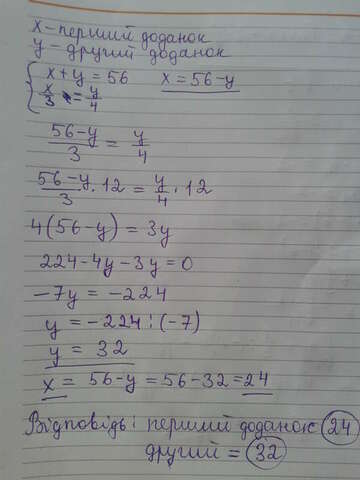 x - перший доданок
y - другий доданок
{ x + y = 56    x = 56 - y
x/3 = y/4
56-y/3 = y/4
56-y/3 · 12 = y/4 · 12
4(56-y) = 3y
224 - 4y - 3y = 0
-7y = -224
y = -224 : (-7)
y = 32
x = 56 - y = 56 - 32 = 24
Відповідь: перший доданок 24
другий = 32